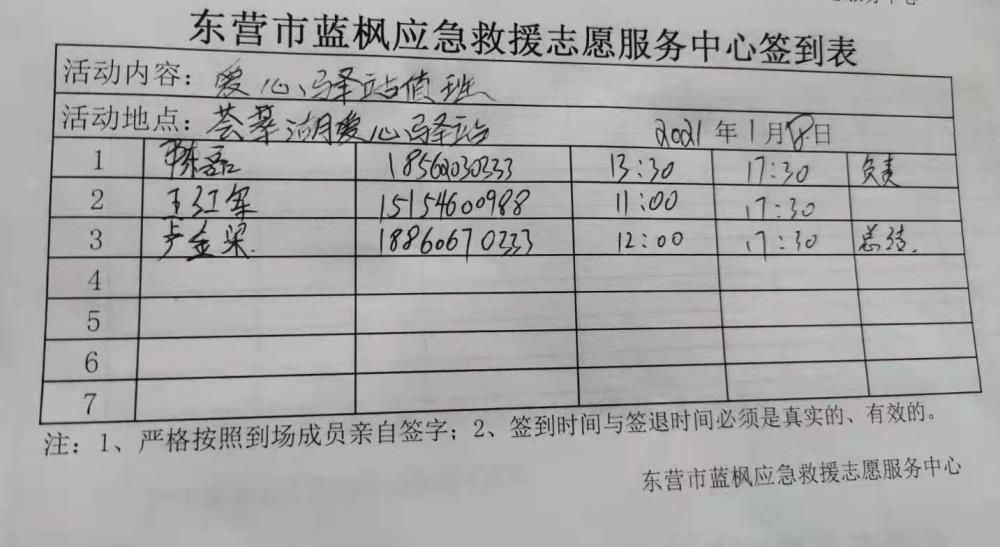 服务中心
东营市蓝枫应急救援志愿服务中心签到表
活动内容：爱心驿站值班
活动地点：荟萃湖爱心驿站 2021年1月8日
1 陈磊 18562030333 13:30 17:30 负责
2 王红军 15154600988 11:00 17:30
3 卢金梁 18860670233 12:00 17:30 总结
4
5
6
7
注：1、严格按照到场成员亲自签字；2、签到时间与签退时间必须是真实的、有效的。
东营市蓝枫应急救援志愿服务中心